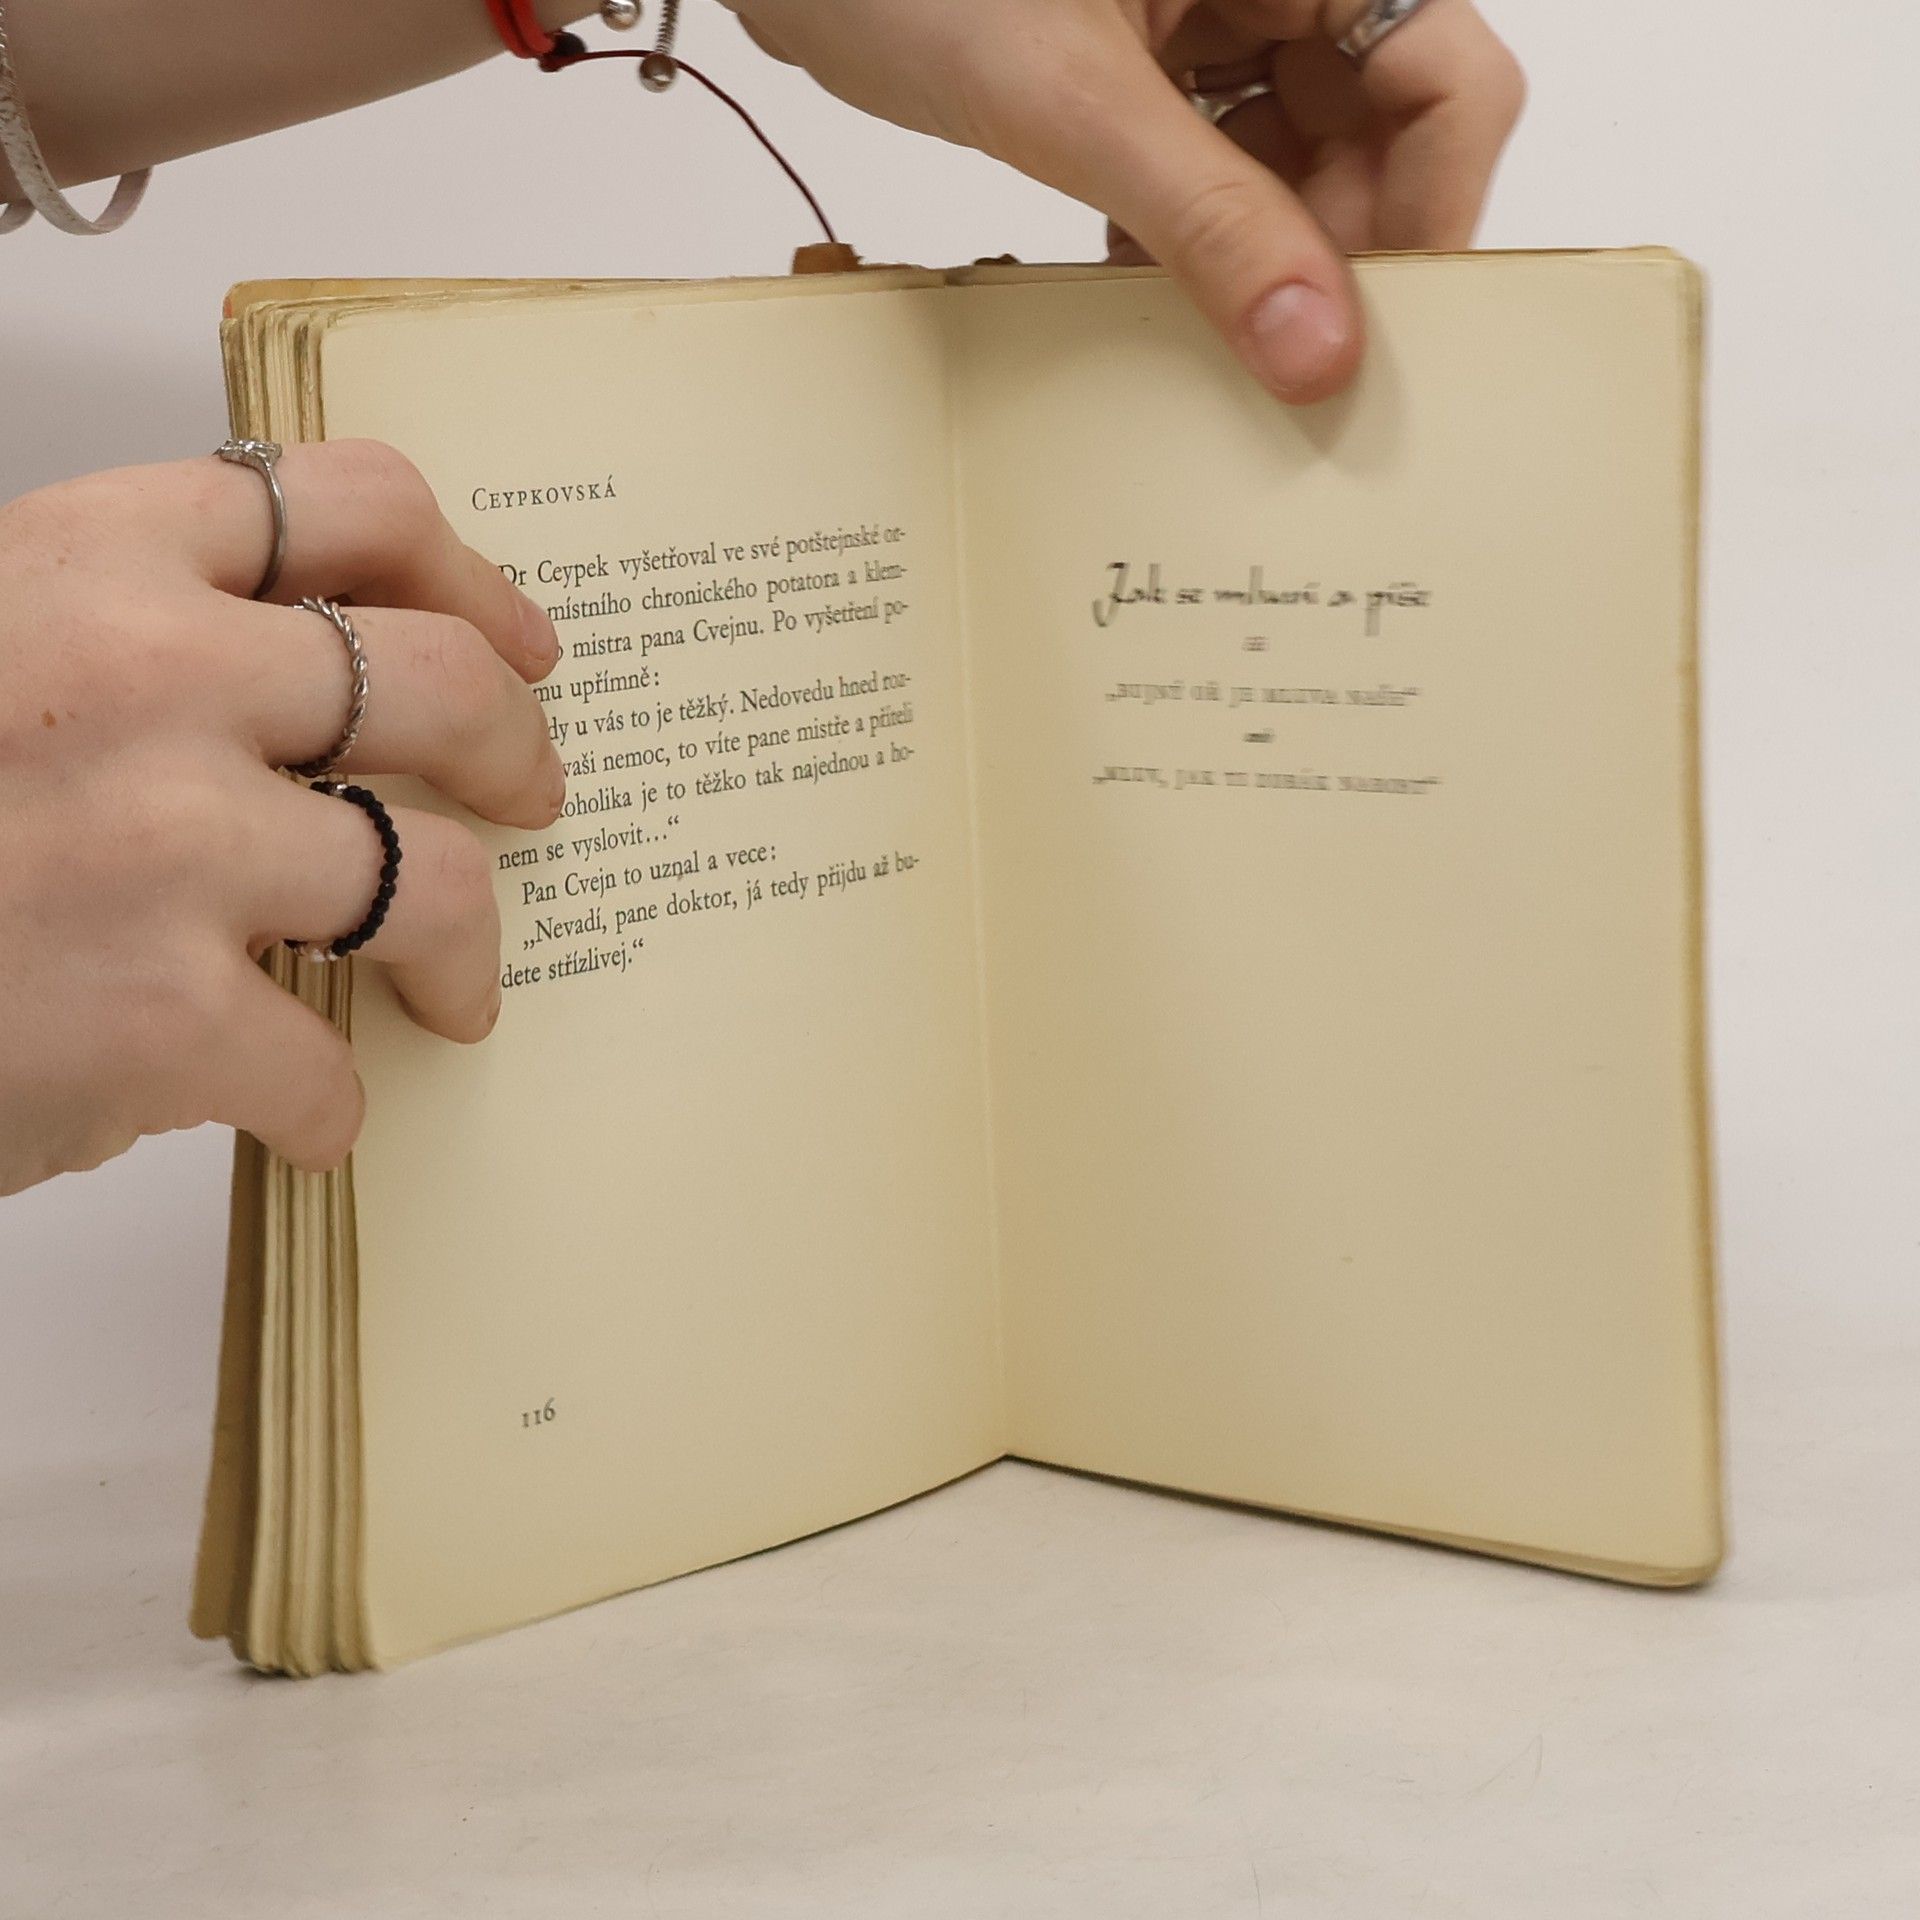 CEYPKOVSKÁ
Dr Ceypek vyšetřoval ve své potštejnské or-
místního chronického potatora a klem-
mistra pana Cvejnu. Po vyšetření po-
mu upřímně:
dy u vás to je těžký. Nedovedu hned roz-
vaši nemoc, to víte pane mistře a příteli
koholika je to těžko tak najednou a ho-
nem se vyslovit...“
Pan Cvejn to uznal a vece:
„Nevadí, pane doktor, já tedy přijdu až bu-
dete střízlivej.“
116
Jak se mluví a píše
„MLUV, JAK TI ZOBÁK NAROST“